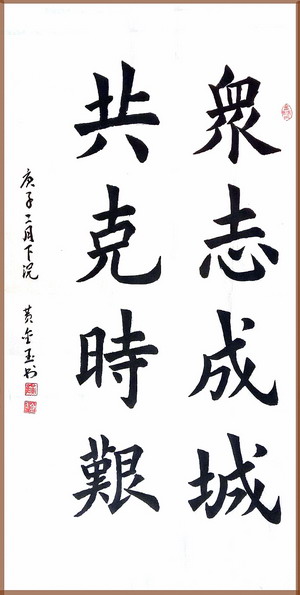 衆志成城
共克時艱
庚子二月下浣
黄金玉书